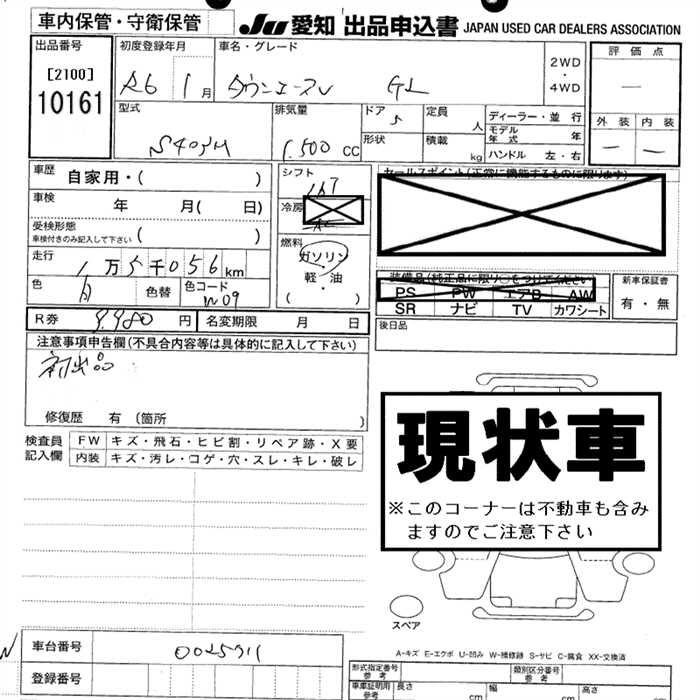 車内保管・守衛保管
JU 愛知 出品申込書 JAPAN USED CAR DEALERS ASSOCIATION
出品番号
[2100]
10161
初度登録年月
R6 1月
車名・グレード
タウンエースV GL
2WD
・
4WD
評価点
—
外装 内装
— —
型式
S403M
排気量
1,500 cc
ドア 5
形状
定員 人
積載 kg
ディーラー・並行
モデル年式 年
ハンドル 左・右
車歴 自家用・( )
車検 年 月( 日)
受検形態
車検付きのみ記入して下さい ( )
走行 1万5千056km
色 白 色替 色コード W09
シフト
IAT
冷房
AC
燃料
ガソリン
・
軽・油
( )
セールスポイント(正常に機能するものに限ります)
装備品(純正品に限り○をつけてください
PS PW エアB AW
SR ナビ TV カワシート
新車保証書
有・無
後日品
R券 9,980円 名変期限 月 日
注意事項申告欄(不具合内容等は具体的に記入して下さい)
初出品
修復歴 有 (箇所 )
検査員記入欄
FW キズ・飛石・ヒビ割・リペア跡・X要
内装 キズ・汚レ・コゲ・穴・スレ・キレ・破レ
現状車
※このコーナーは不動車も含み
ますのでご注意下さい
スペア
A-キズ E-エクボ U-凹み W-補修跡 S-サビ C-腐食 XX-交換済
車台番号 0025911
登録番号
形式指定番号 参考
類別区分番号 参考
車庫証明用 参考 長さ 幅 高さ